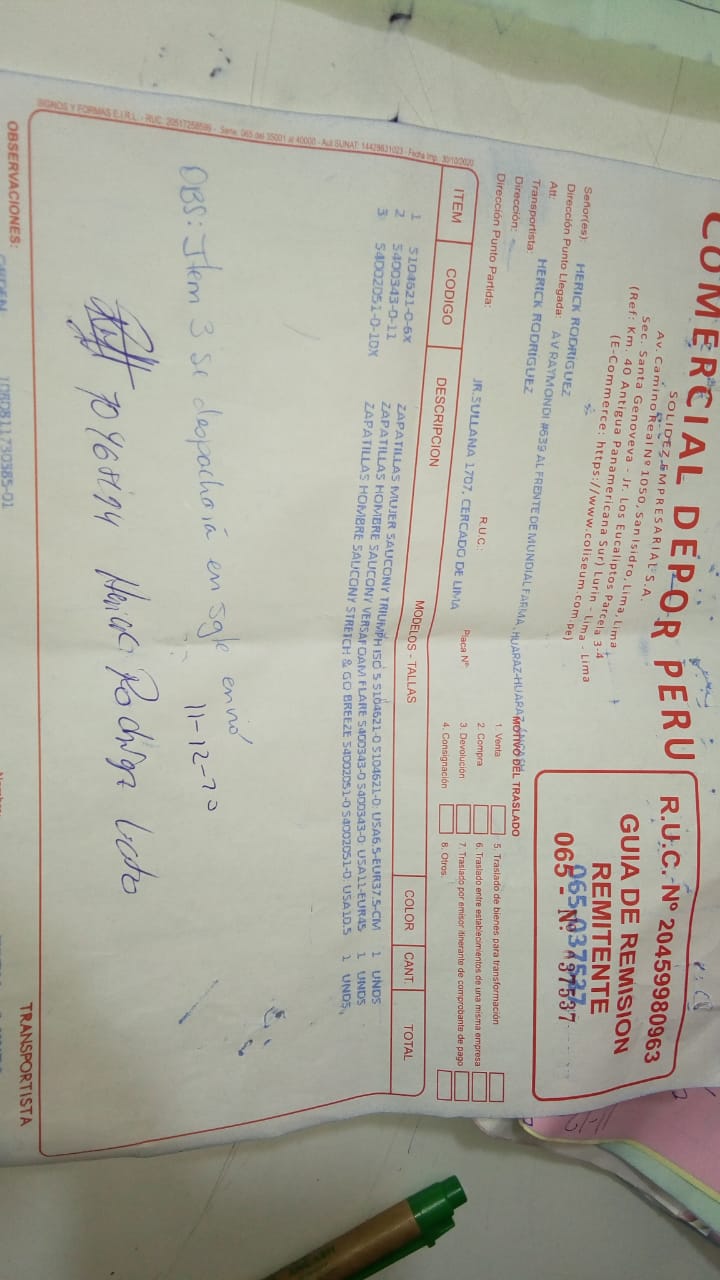 COMERCIAL DEPOR PERU
SOLIDEZ EMPRESARIAL S.A.
Av. Camino Real Nº 1050, San Isidro, Lima, Lima
Sec. Santa Genoveva - Jr. Los Eucaliptos Parcela 3-4
(Ref: Km. 40 Antigua Panamericana Sur) Lurin - Lima - Lima
(E-Commerce: https://www.coliseum.com.pe)
R.U.C. Nº 20459980963
GUIA DE REMISION
REMITENTE
065-037537
065 - Nº 037537
Señor(es): HERICK RODRIGUEZ
Dirección Punto Llegada: AV RAYMONDI #639 AL FRENTE DE MUNDIAL FARMA, HUARAZ-HUARAZ-
Att:
Transportista: HERICK RODRIGUEZ
R.U.C.:
Dirección:
Placa Nº
Dirección Punto Partida: JR.SULLANA 1707, CERCADO DE LIMA
MOTIVO DEL TRASLADO
1. Venta
2. Compra
3. Devolución
4. Consignación
5. Traslado de bienes para transformación
6. Traslado entre establecimientos de una misma empresa
7. Traslado por emisor itinerante de comprobante de pago
8. Otros
ITEM CODIGO DESCRIPCION MODELOS - TALLAS COLOR CANT. TOTAL
1 S104621-0-6X ZAPATILLAS MUJER SAUCONY TRIUMPH ISO 5 S104621-0 S104621-0: USA6.5-EUR37.5-CM 1 UNDS
2 S400343-0-11 ZAPATILLAS HOMBRE SAUCONY VERSAFOAM FLARE S400343-0 S400343-0: USA11-EUR45 1 UNDS
3 S4002051-0-10X ZAPATILLAS HOMBRE SAUCONY STRETCH & GO BREEZE S4002051-0 S4002051-0: USA10.5 1 UNDS
OBS: Item 3 se despachará en sgte envió
11-12-20
SIGNOS Y FORMAS E.I.R.L. - RUC: 20517258599 - Serie: 065 del 35001 al 40000 - Aut SUNAT: 14429631023 - Fecha Imp. 30/10/2020
OBSERVACIONES:
TRANSPORTISTA